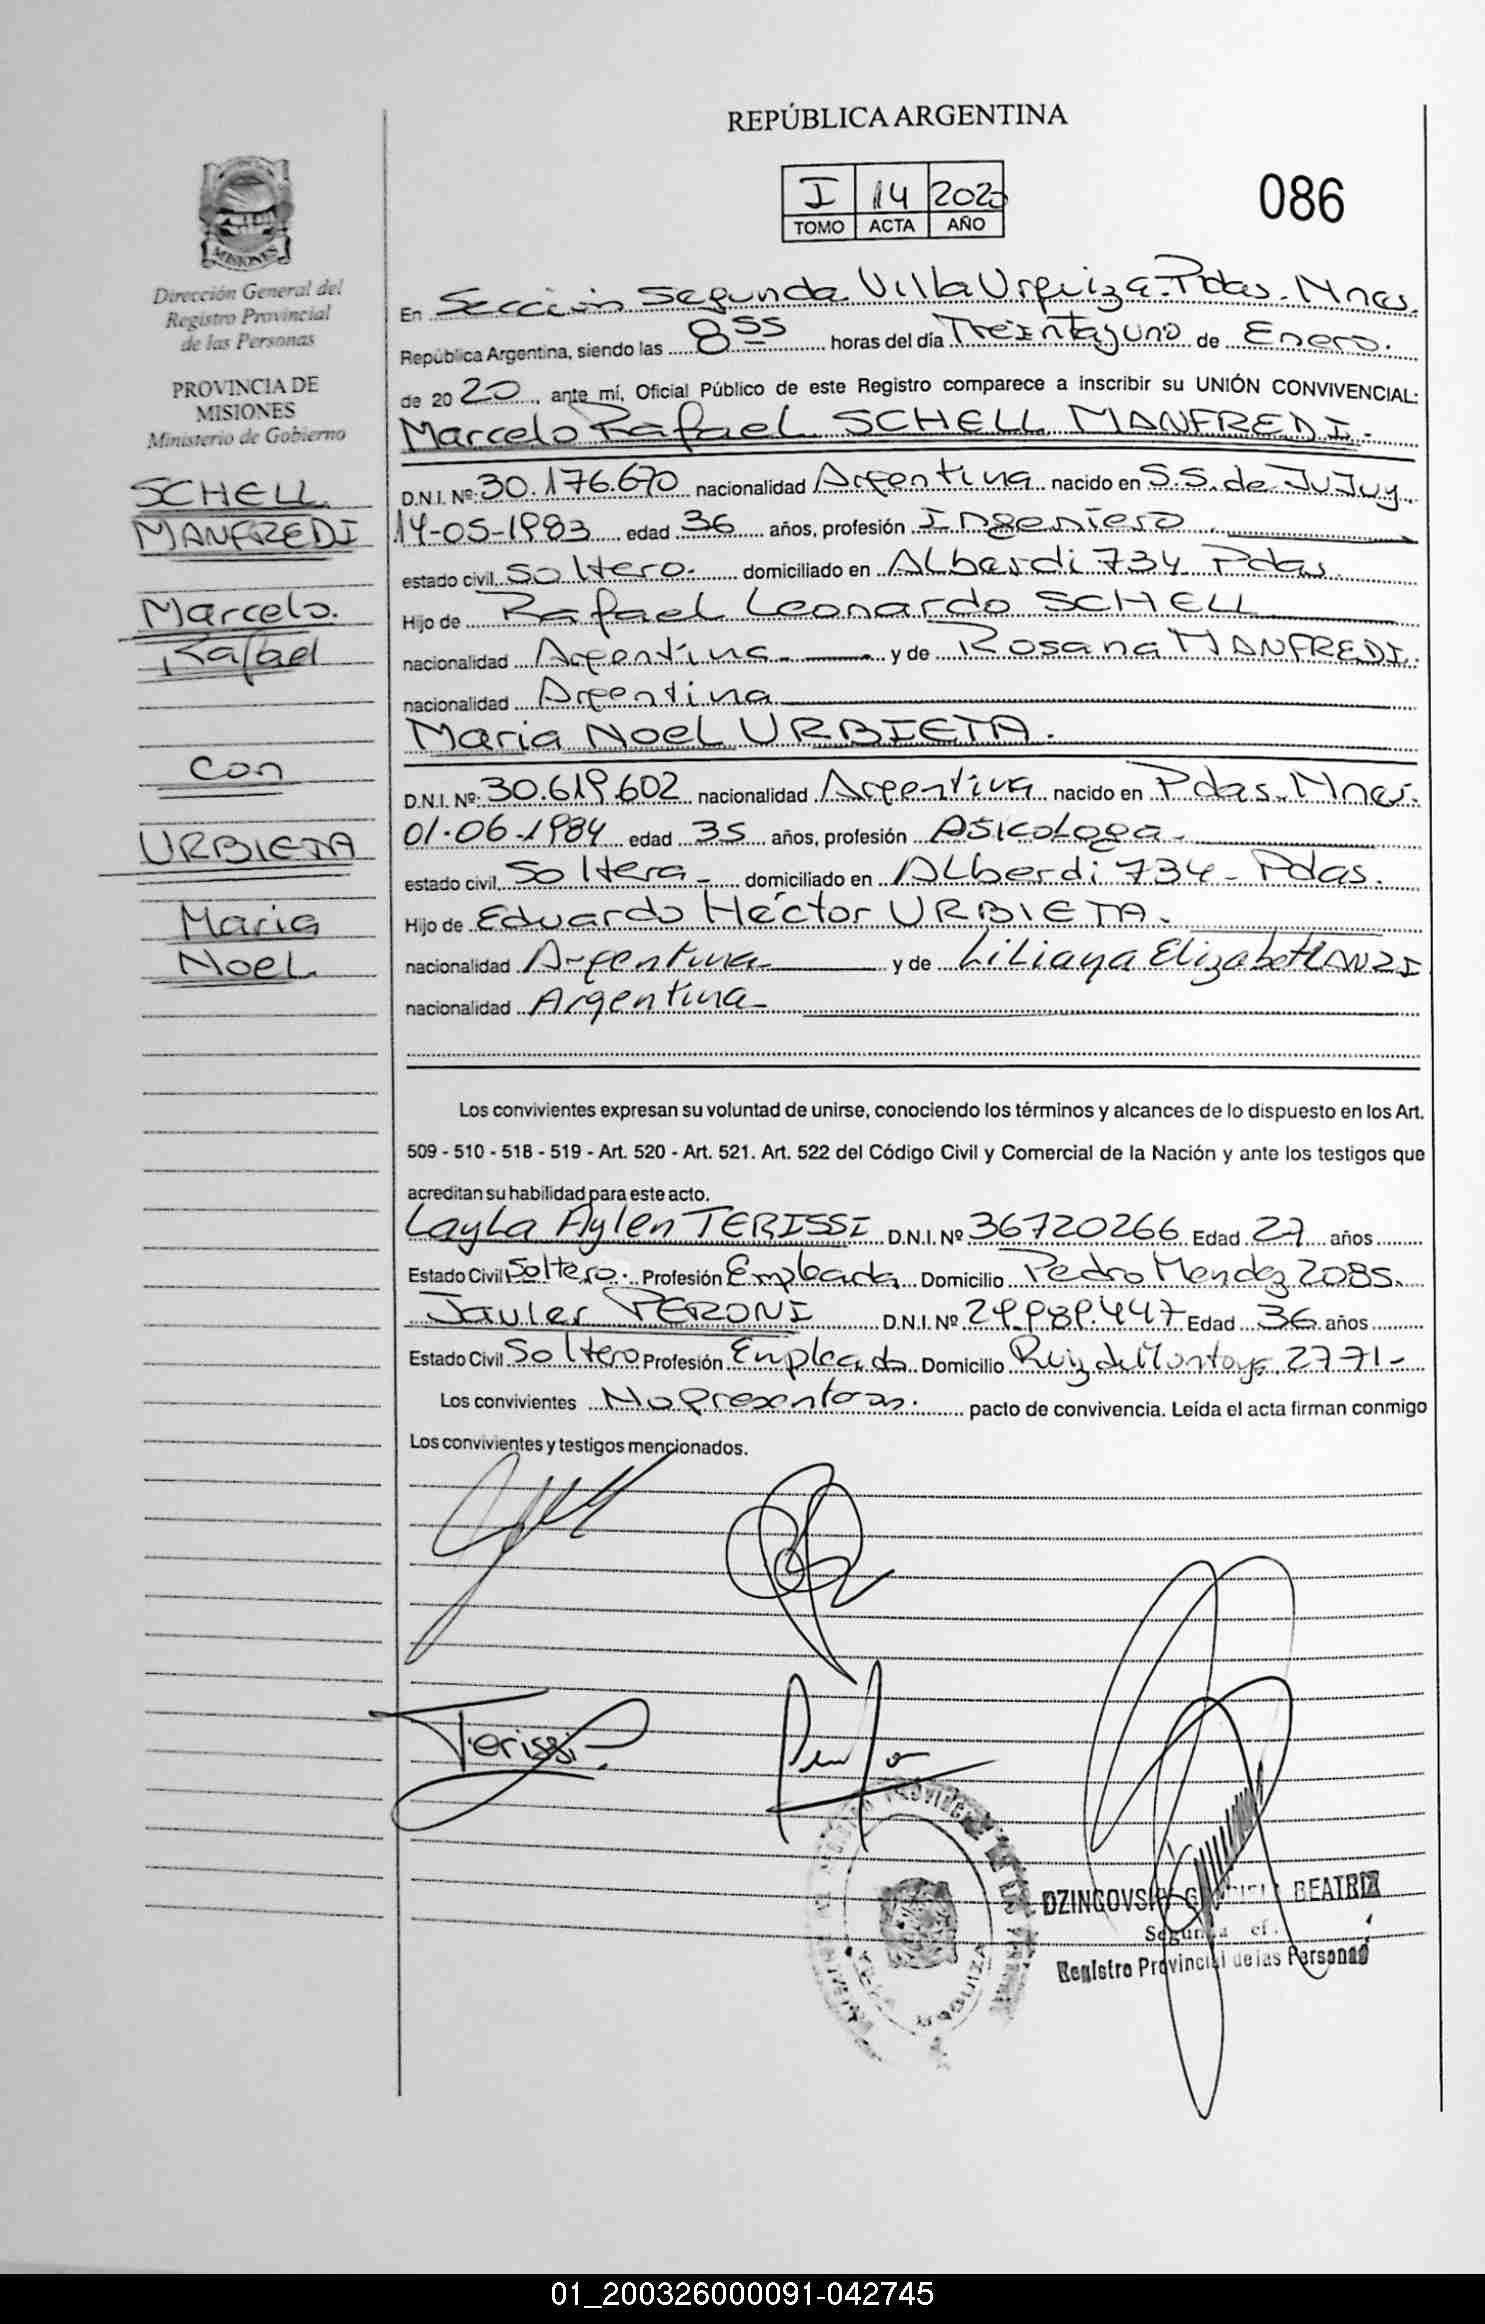 REPÚBLICA ARGENTINA
I 14 2020
TOMO ACTA AÑO
086
MISIONES
Dirección General del
Registro Provincial
de las Personas
PROVINCIA DE
MISIONES
Ministerio de Gobierno
SCHELL
MANFREDI
Marcelo.
Rafael
Con
URBIETA
Maria
Noel
En Sección Segunda Villa Urquiza. Pdas. Mnes.
República Argentina, siendo las 8 55 horas del día Treintayuno de Enero.
de 20 20, ante mí, Oficial Público de este Registro comparece a inscribir su UNIÓN CONVIVENCIAL:
Marcelo Rafael SCHELL MANFREDI.
D.N.I. Nº: 30.176.670 nacionalidad Argentina nacido en S.S. de JuJuy.
14-05-1983 edad 36 años, profesión Ingeniero
estado civil Soltero. domiciliado en Alberdi 734 Pdas.
Hijo de Rafael Leonardo SCHELL
nacionalidad Argentina y de Rosana MANFREDI.
nacionalidad Argentina
Maria Noel URBIETA.
D.N.I. Nº: 30.619.602 nacionalidad Argentina nacido en Pdas. Mnes.
01-06-1984 edad 35 años, profesión Psicologa-
estado civil Soltera- domiciliado en Alberdi 734- Pdas.
Hijo de Eduardo Héctor URBIETA.
nacionalidad Argentina y de Liliana Elizabeth
nacionalidad Argentina-
Los convivientes expresan su voluntad de unirse, conociendo los términos y alcances de lo dispuesto en los Art.
509 - 510 - 518 - 519 - Art. 520 - Art. 521. Art. 522 del Código Civil y Comercial de la Nación y ante los testigos que
acreditan su habilidad para este acto.
Layla Aylen TERISSI D.N.I. Nº 36720266 Edad 27 años
Estado Civil Soltero. Profesión Empleada Domicilio Pedro Mendez 2085.
Javier PERONI D.N.I. Nº 29.989.447 Edad 36 años
Estado Civil Soltero Profesión Empleado Domicilio Ruiz de Montoya 2771-
Los convivientes No presentan. pacto de convivencia. Leída el acta firman conmigo
Los convivientes y testigos mencionados.
Terissi
DZINGOVSKY BEATRIZ
Registro Provincial de las Personas
01_200326000091-042745